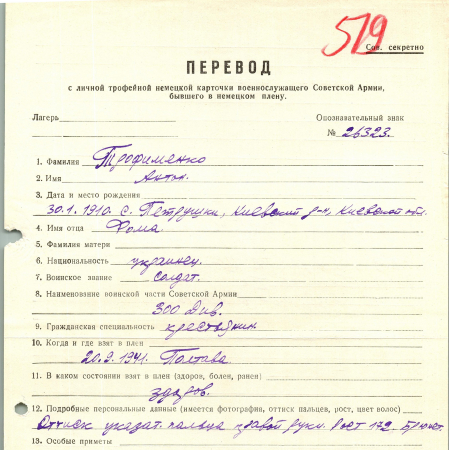 519
Сов. секретно
ПЕРЕВОД
с личной трофейной немецкой карточки военнослужащего Советской Армии,
бывшего в немецком плену.
Лагерь Опознавательный знак
№ 26323.
1. Фамилия Трофименко
2. Имя Антон.
3. Дата и место рождения
30.1.1910. с. Петрушки, Киевский р-н, Киевской обл.
4. Имя отца Фома
5. Фамилия матери
6. Национальность украинец.
7. Воинское звание солдат.
8. Наименование воинской части Советской Армии
300 Див.
9. Гражданская специальность крестьянин
10. Когда и где взят в плен
20.9.1941. Полтава
11. В каком состоянии взят в плен (здоров, болен, ранен)
здоров.
12. Подробные персональные данные (имеется фотография, оттиск пальцев, рост, цвет волос)
Оттиск указат. пальца правой руки. Рост 172. Брюнет.
13. Особые приметы